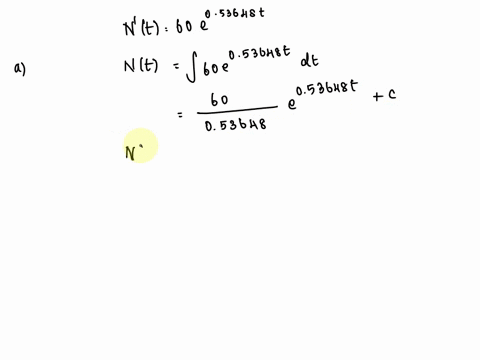 N'(t) = 60 e^{0.53648t}
a) N(t) = ∫ 60 e^{0.53648t} dt
= 60/0.53648 e^{0.53648t} + c
N